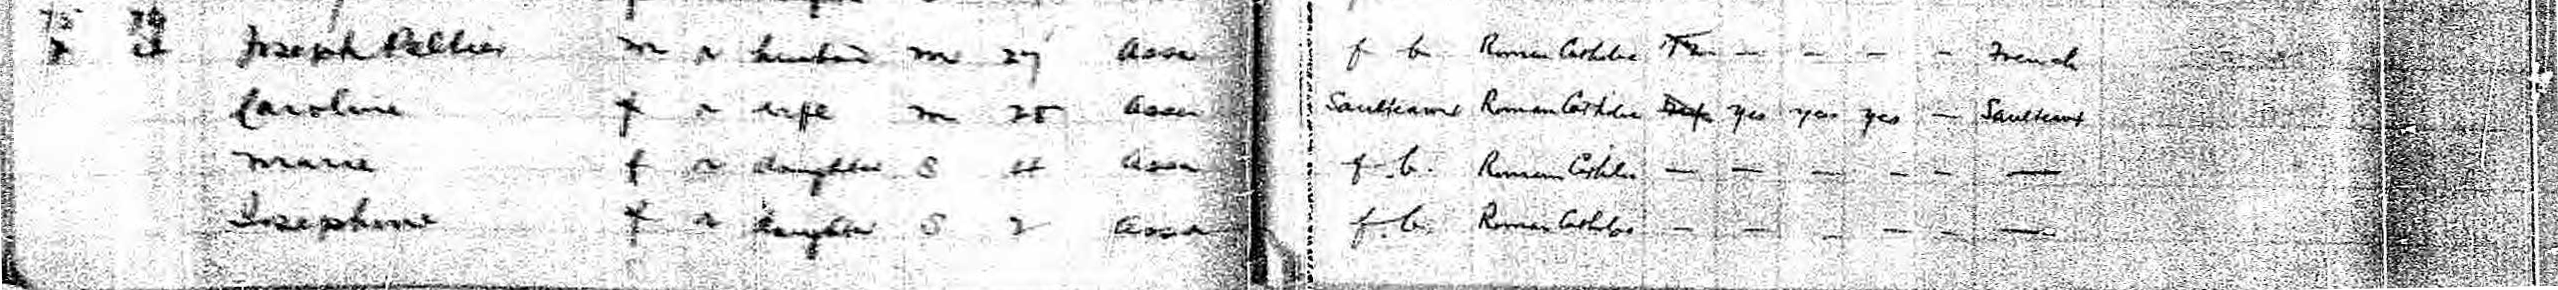 Joseph Peltier m r husband m 27 Assa f b Roman Catholic Fr - - - - French
Caroline f r wife m 25 Assa Saulteaux Roman Catholic yes yes yes - Saulteaux
Marie f r daughter S 4 Assa f. b. Roman Catholic - - - - - -
Josephine f r daughter S 2 Assa f. b. Roman Catholic - - - - - -